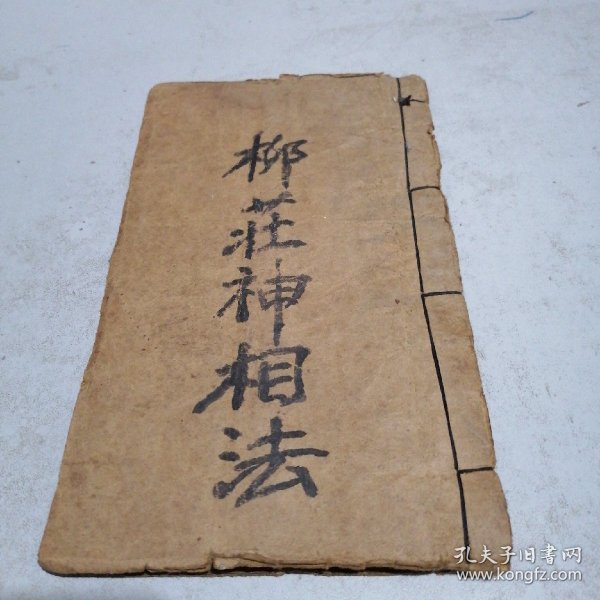 柳莊神相法
孔夫子旧書网
www.kongfz.com